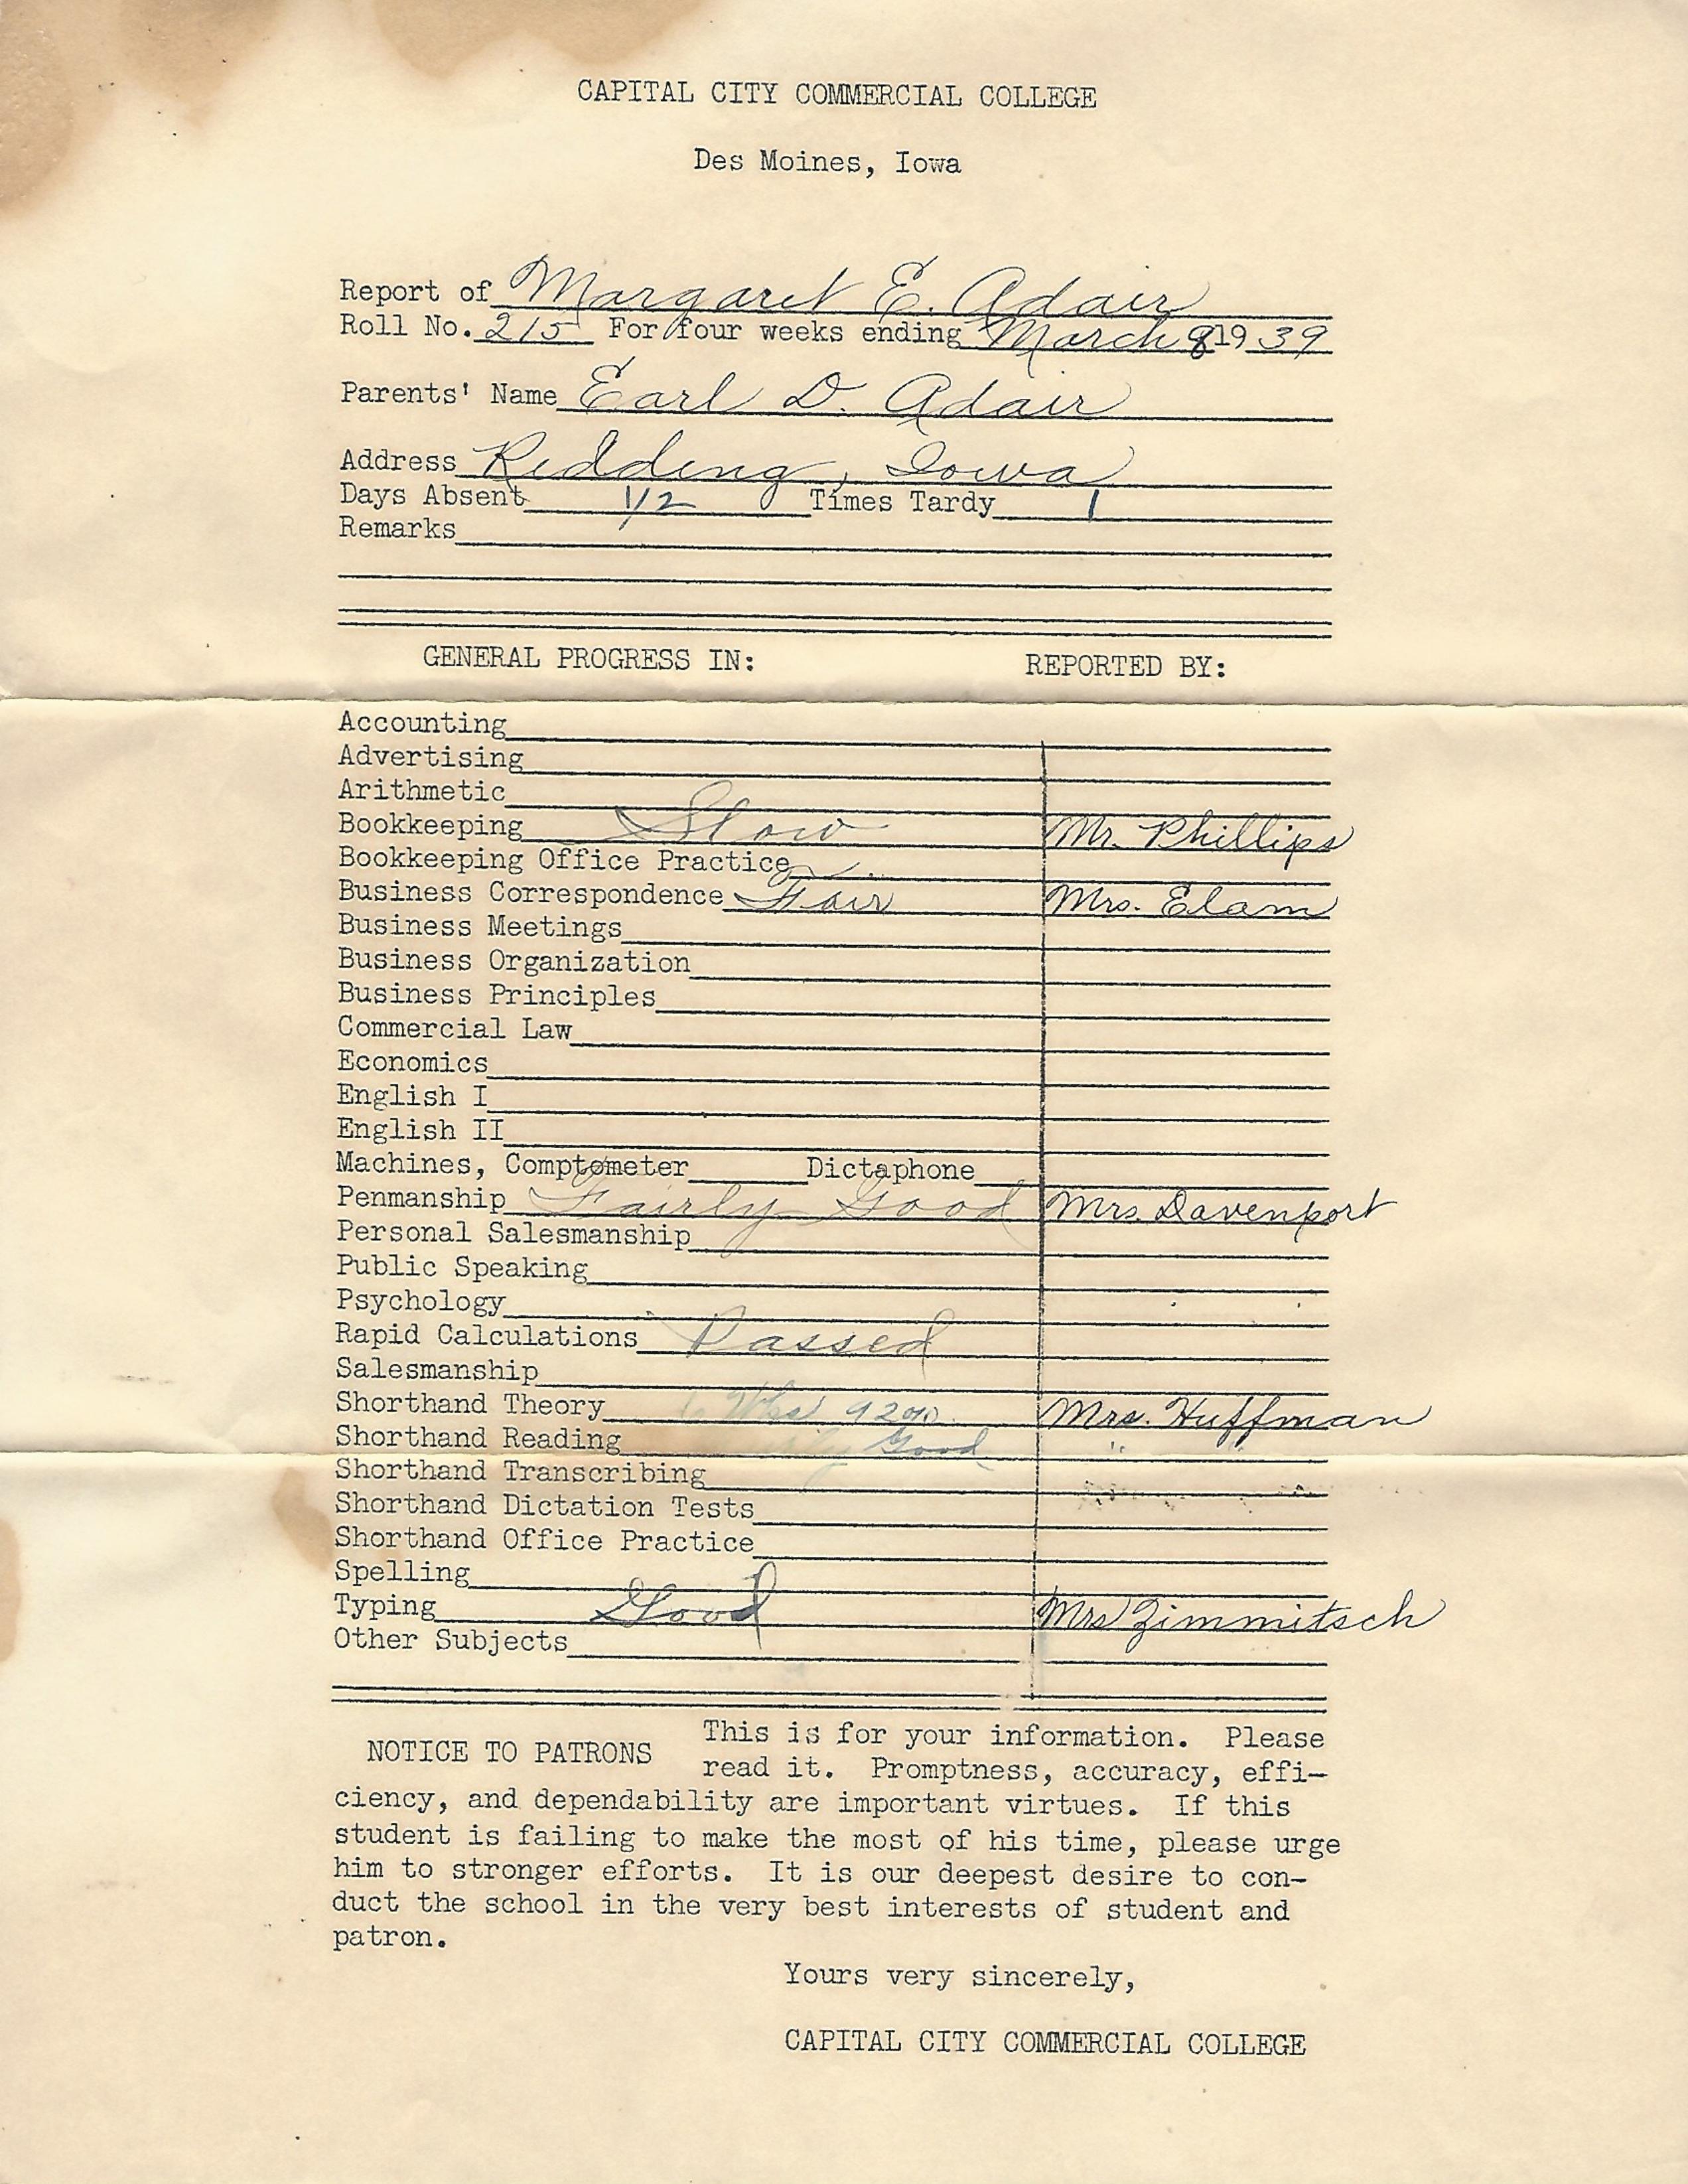 CAPITAL CITY COMMERCIAL COLLEGE
Des Moines, Iowa
Report of Margaret E. Adair
Roll No. 215 For four weeks ending March 8 19 39
Parents' Name Earl D. Adair
Address Redding, Iowa
Days Absent 1/2 Times Tardy 1
Remarks
GENERAL PROGRESS IN: REPORTED BY:
Accounting
Advertising
Arithmetic
Bookkeeping Slow Mr. Phillips
Bookkeeping Office Practice
Business Correspondence Fair Mrs. Elam
Business Meetings
Business Organization
Business Principles
Commercial Law
Economics
English I
English II
Machines, Comptometer Dictaphone
Penmanship Fairly Good Mrs. Davenport
Personal Salesmanship
Public Speaking
Psychology
Rapid Calculations Passed
Salesmanship
Shorthand Theory 92% Mrs. Huffman
Shorthand Reading Good " "
Shorthand Transcribing
Shorthand Dictation Tests
Shorthand Office Practice
Spelling
Typing Good Mrs Zimmitsch
Other Subjects
NOTICE TO PATRONS This is for your information. Please
read it. Promptness, accuracy, effi-
ciency, and dependability are important virtues. If this
student is failing to make the most of his time, please urge
him to stronger efforts. It is our deepest desire to con-
duct the school in the very best interests of student and
patron.
Yours very sincerely,
CAPITAL CITY COMMERCIAL COLLEGE